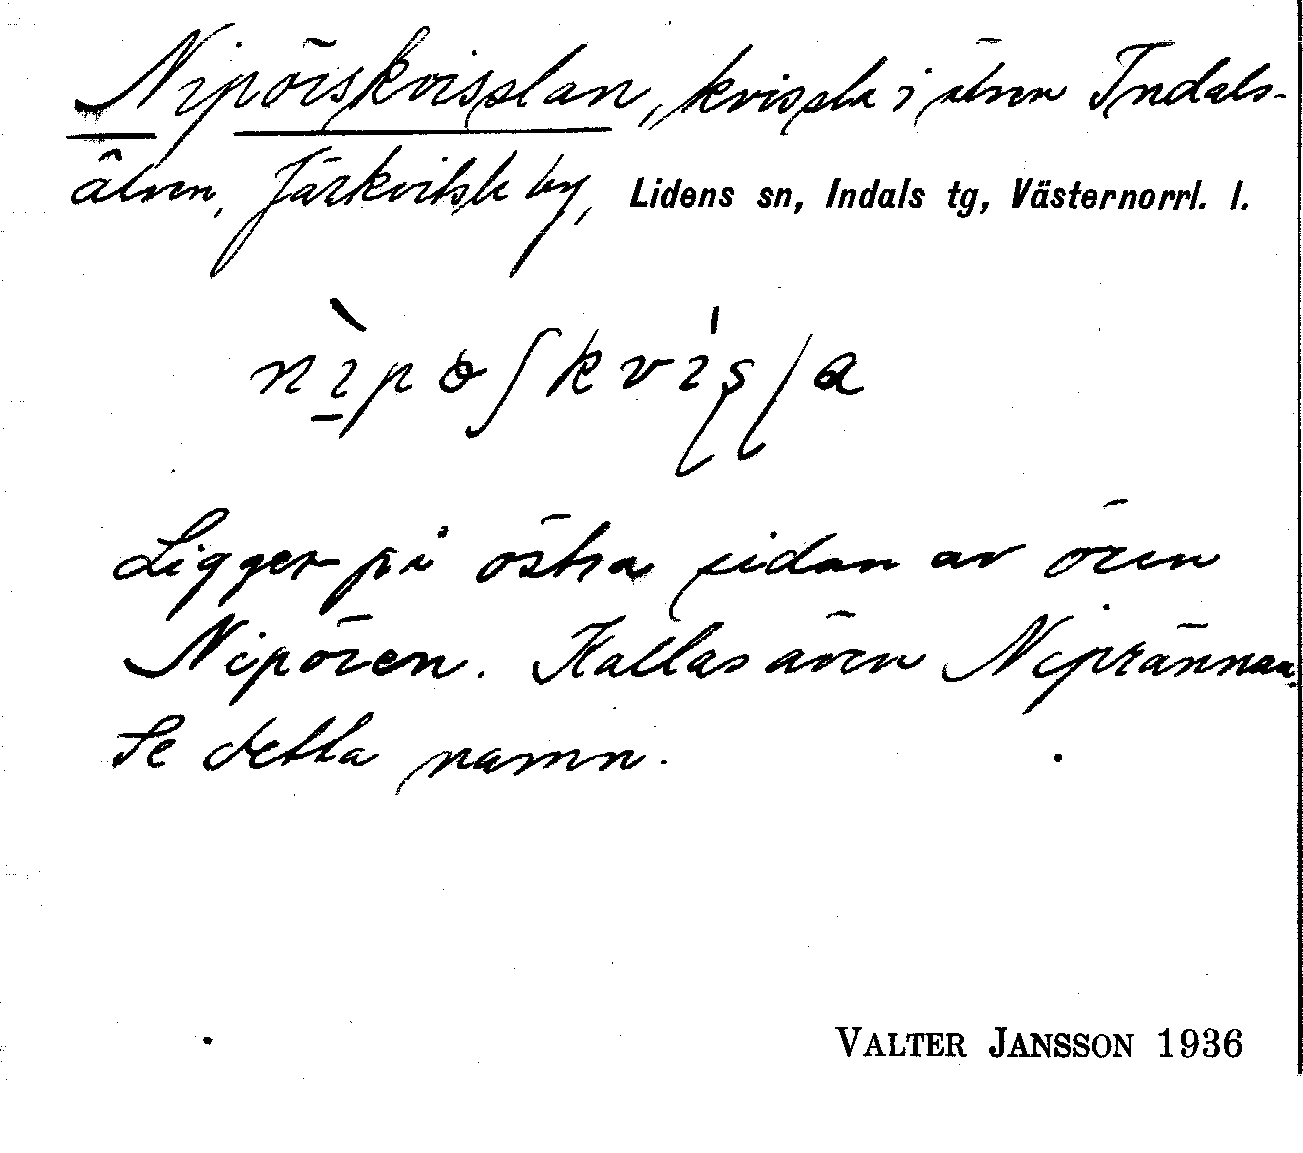 Nipörskvisslan, kvissla i älven Indals-
älven, Järkvitsle by, Lidens sn, Indals tg, Västernorrl. l.
Ligger på östra sidan av ören
Nipören. Kallas även Niprännan.
Se detta namn.
VALTER JANSSON 1936